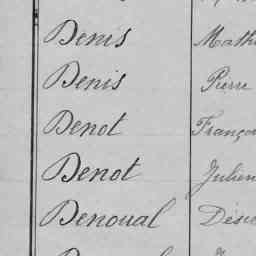 Denis Math
Denis Pierre
Denot Franço
Denot Julien
Denoual Dési